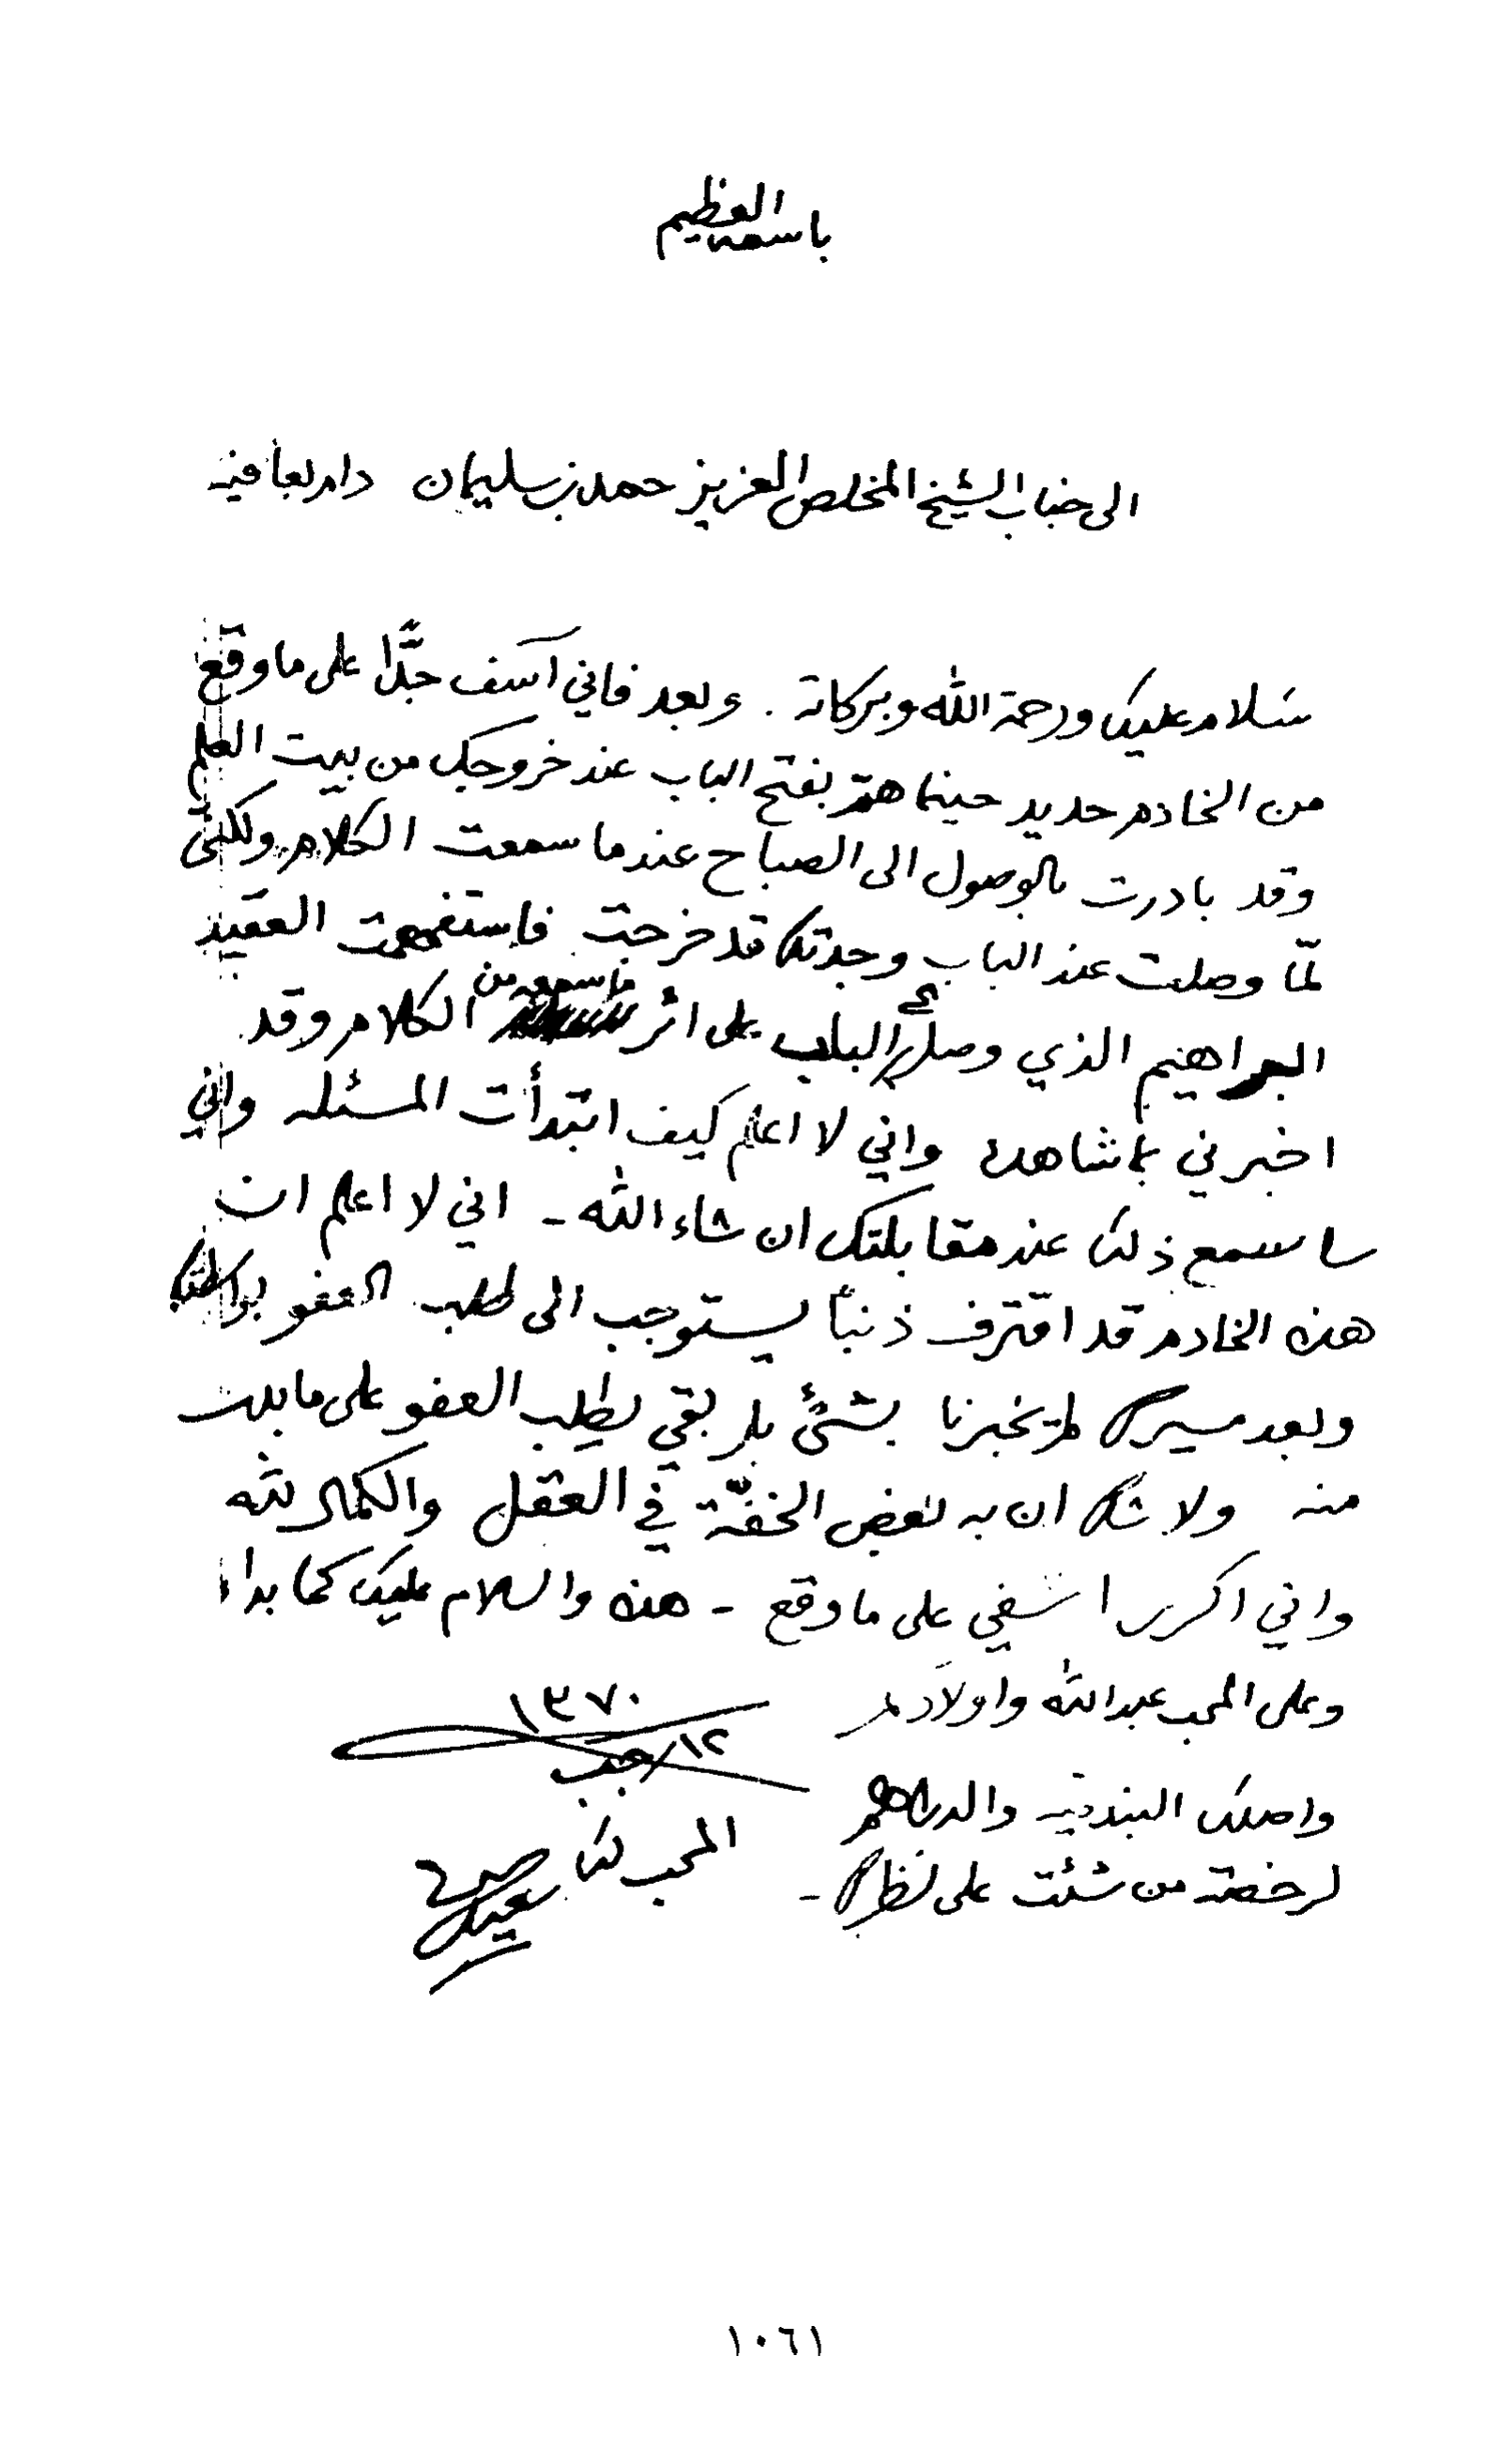 باسمه العظيم
الى جناب الشيخ المخلص العزيز حمد بن سليمان دام بعافيه
سلام عليك ورحمة الله وبركاته . وبعد فاني آسف جدًّا على ما وقع
من الخادم حديد حينما همّ بفتح الباب عند خروجك من بيت العلم
وقد بادرت بالوصول الى الصباح عندما سمعت الكلام ولكني
لمّا وصلت عند الباب وجدتك قد خرجت فاستفهمت العقيد
ابراهيم الذي وصل الباب على اثر ما سمعه من الكلام وقد
اخبرني بما شاهده واني لا اعلم كيف ابتدأت المسئله واني
ساسمع ذلك عند مقابلتك ان شاء الله - اني لا اعلم ان
هذه الخادم قد اقترف ذنبًا يستوجب الى طلب العفو
وبعد مسيرك لم يخبرنا بشئ بل بقي يطلب العفو على ما بدت
منه ولا شك ان به بعض الخفّة في العقل والكمال لله
واني اكرر اسفي على ما وقع - هذه والسلام عليك كما بداء
وعلى المحب عبدالله واولادكم
١٣٧٠
١٢/رجب
واصلك البندقيه والدراهم
المحب لك
لرخصة من شئت على نظرك -
سعيد
١٠٦١